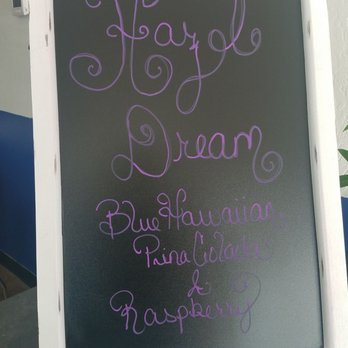 Hazel
Dream
Blue Hawaiian,
Pina Colada
&
Raspberry